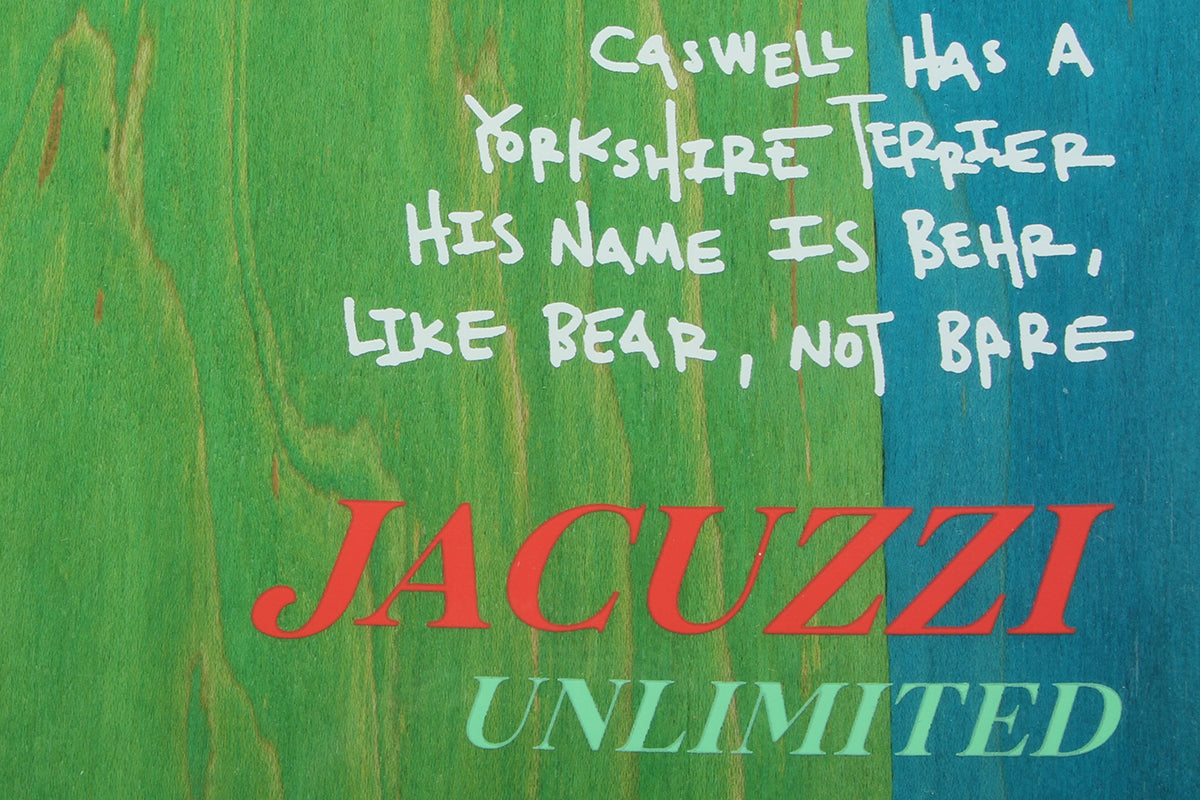 CASWELL HAS A
YORKSHIRE TERRIER
HIS NAME IS BEHR,
LIKE BEAR, NOT BARE
JACUZZI
UNLIMITED